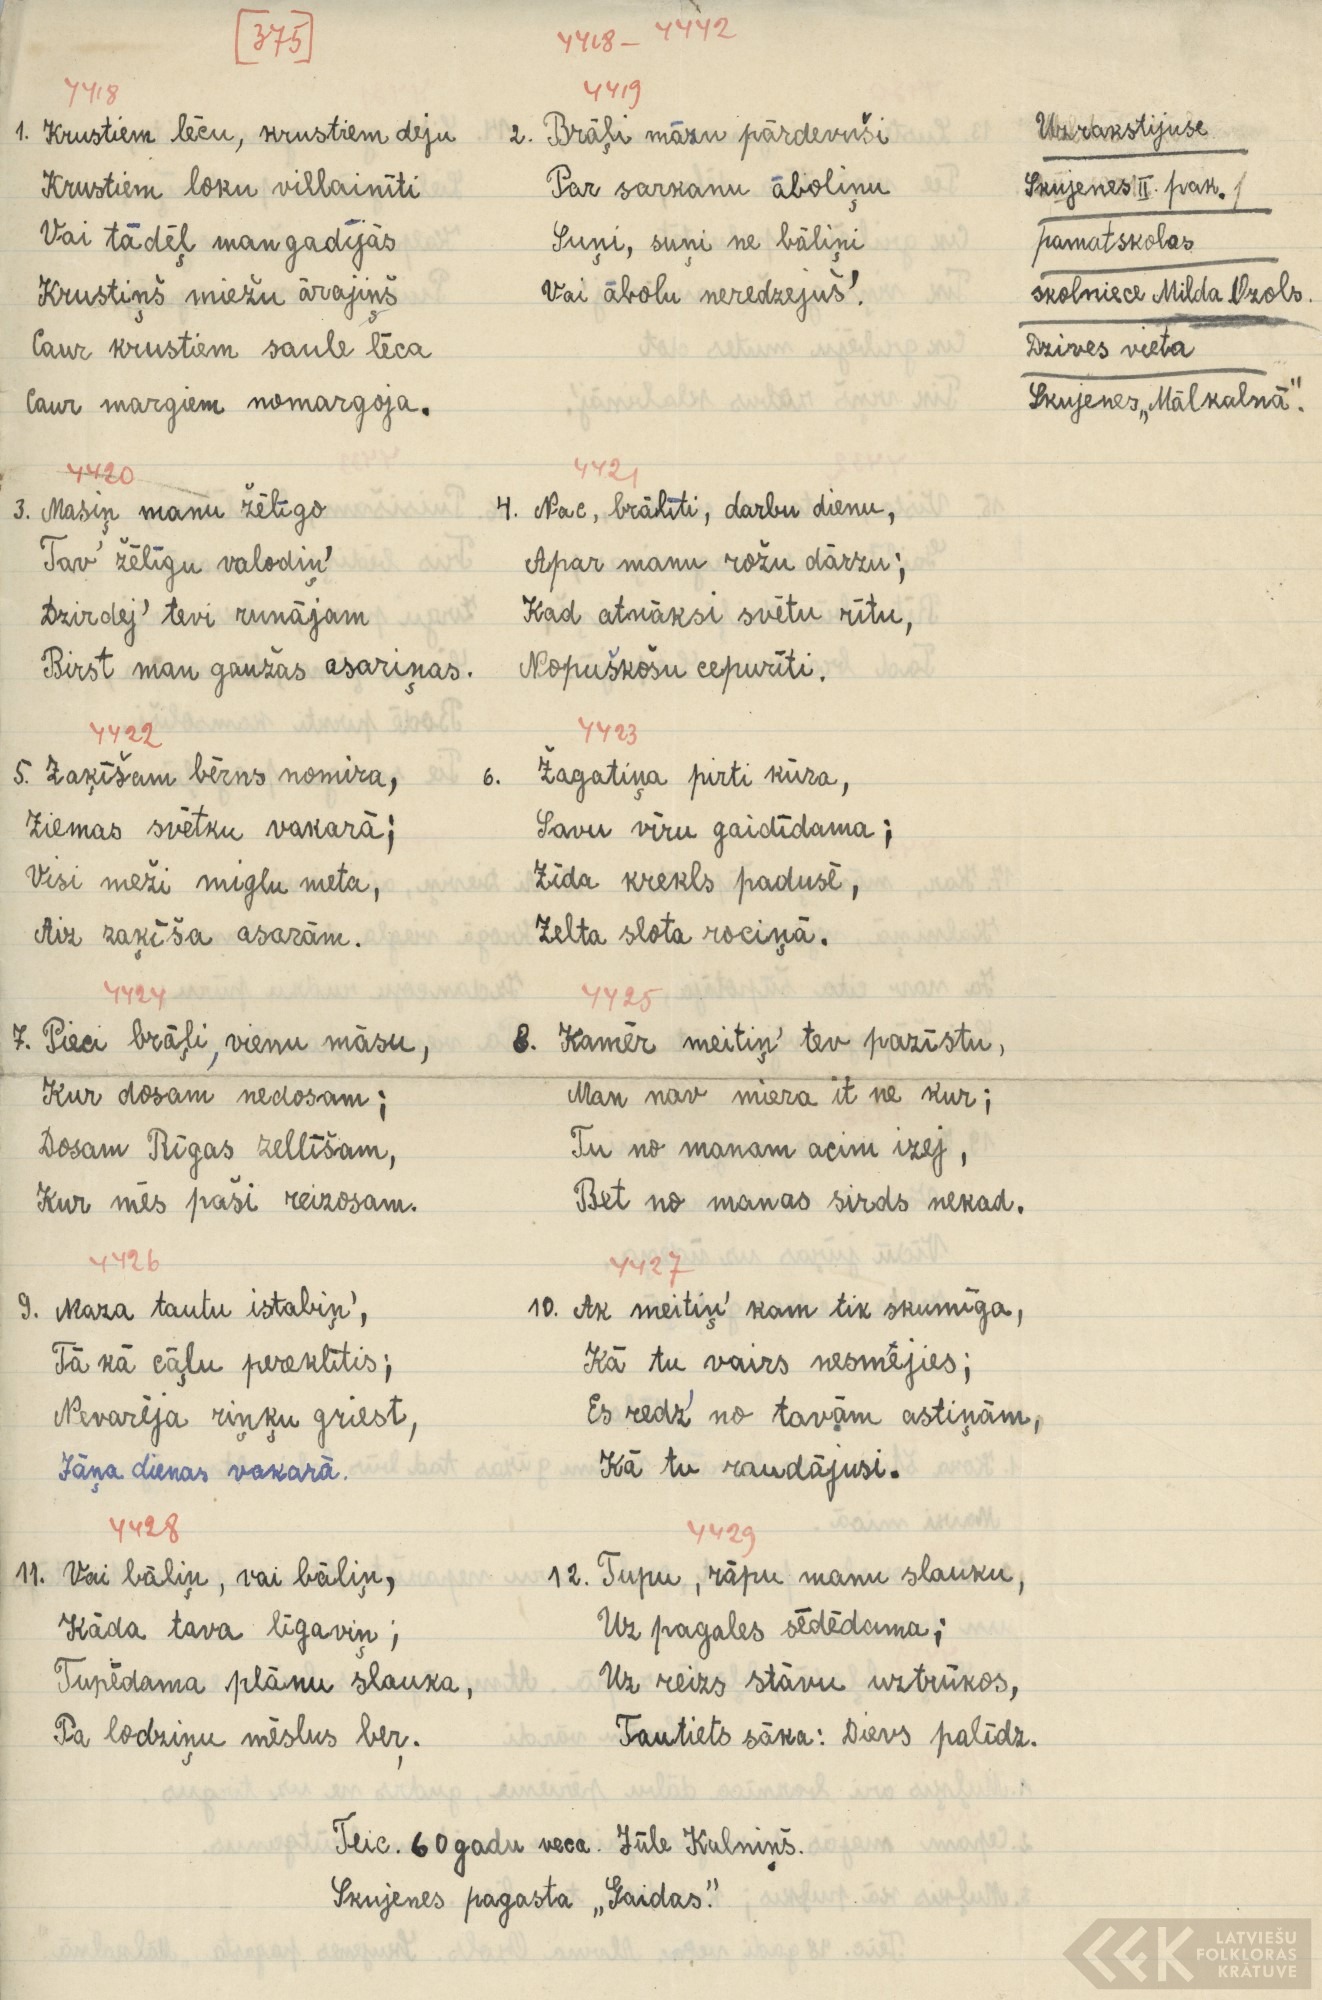 [375]
4418 – 4442
4418
1. Krustiem lēcu, krustiem deju
Krustiem loku villainīti
Vai tādēļ man gadījās
Krustiņš miežu ārajiņš
Caur krustiem saule lēca
Caur margiem nomargoja.
4419
2. Brāļi māzu pārdevuši
Par sarkanu āboliņu
Suņi, suņi ne bāliņi
Vai ābolu neredzejuš'.
Uzrakstijuse
Skujenes II. pak.
pamatskolas
skolniece Milda Ozols.
Dzives vieta
Skujenes „Mālkalnā".
4420
3. Masiņ manu žēlīgo
Tav' žēlīgu valodiņ'
Dzirdej' tevi runājam
Birst man gaužas asariņas.
4421
4. Nac, brālīti, darbu dienu,
Apar manu rožu dārzu;
Kad atnāksi svētu rītu,
Nopuškošu cepurīti.
4422
5. Zaķīšam bērns nomira,
Ziemas svētku vakarā;
Visi meži miglu meta,
Aiz zaķīša asarām.
4423
6. Žagatiņa pirti kūra,
Savu vīru gaidīdama;
Zīda krekls padusē,
Zelta slota rociņā.
4424
7. Pieci brāļi, vienu māsu,
Kur dosam nedosam;
Dosam Rīgas zellīšam,
Kur mēs paši reizosam.
4425
8. Kamēr meitiņ' tev pazīstu,
Man nav miera it ne kur;
Tu no manam acim izej,
Bet no manas sirds nekad.
4426
9. Maza tautu istabiņ',
Tā kā cāļu pereklītis;
Nevarēja riņķu griest,
Jāņa dienas vakarā.
4427
10. Ak meitiņ' kam tik skumīga,
Kā tu vairs nesmējies;
Es redz' no tavām astiņām,
Kā tu raudājusi.
4428
11. Vai bāliņ, vai bāliņ,
Kāda tava līgaviņ;
Tupēdama plānu slauka,
Pa lodziņu mēslus beŗ.
4429
12. Tupu, rāpu manu slauku,
Uz pagales sēdēdama;
Uz reizs stāvu uztrūkos,
Tautiets sāka: Dievs palīdz.
Teic. 60 gadu veca. Jūle Kalniņš.
Skujenes pagasta „Gaidas".
LATVIEŠU
FOLKLORAS
KRĀTUVE